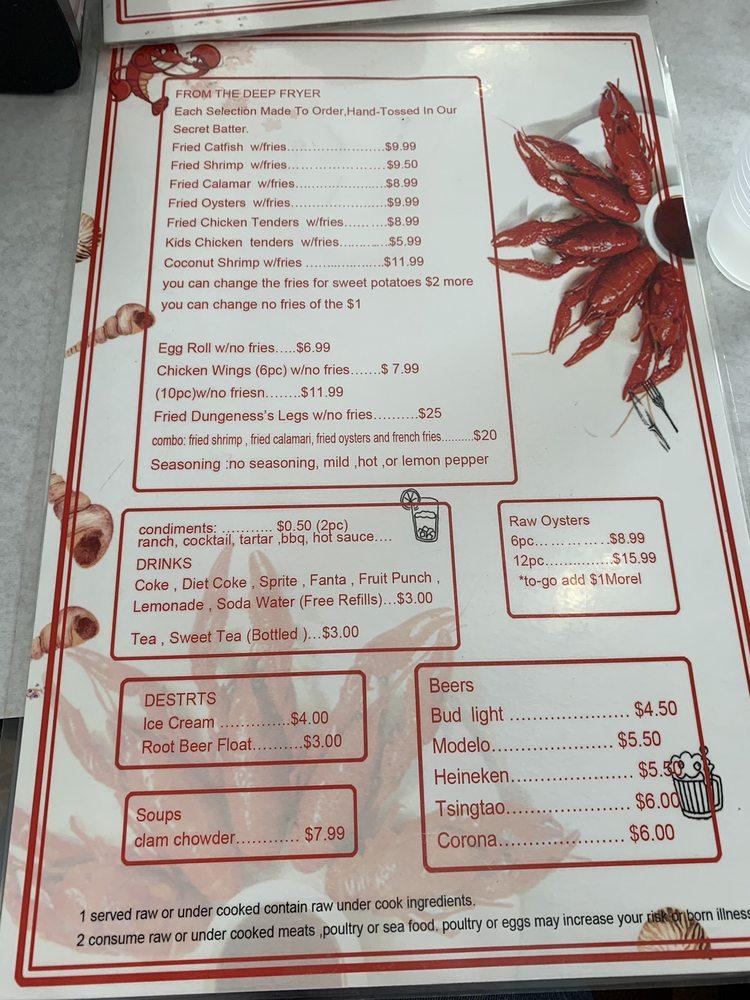 FROM THE DEEP FRYER
Each Selection Made To Order,Hand-Tossed In Our
Secret Batter.
Fried Catfish w/fries........................$9.99
Fried Shrimp w/fries........................$9.50
Fried Calamar w/fries......................$8.99
Fried Oysters w/fries.......................$9.99
Fried Chicken Tenders w/fries.........$8.99
Kids Chicken tenders w/fries............$5.99
Coconut Shrimp w/fries ...................$11.99
you can change the fries for sweet potatoes $2 more
you can change no fries of the $1
Egg Roll w/no fries.....$6.99
Chicken Wings (6pc) w/no fries.......$ 7.99
(10pc)w/no friesn........$11.99
Fried Dungeness's Legs w/no fries..........$25
combo: fried shrimp , fried calamari, fried oysters and french fries..........$20
Seasoning :no seasoning, mild ,hot ,or lemon pepper
condiments: ........... $0.50 (2pc)
ranch, cocktail, tartar ,bbq, hot sauce....
DRINKS
Coke , Diet Coke , Sprite , Fanta , Fruit Punch ,
Lemonade , Soda Water (Free Refills)...$3.00
Tea , Sweet Tea (Bottled )...$3.00
Raw Oysters
6pc... ... ... ... ..$8.99
12pc...............$15.99
*to-go add $1Morel
DESTRTS
Ice Cream ..............$4.00
Root Beer Float..........$3.00
Soups
clam chowder............ $7.99
Beers
Bud light ...................... $4.50
Modelo...................... $5.50
Heineken....................... $5.50
Tsingtao....................... $6.00
Corona....................... $6.00
1 served raw or under cooked contain raw under cook ingredients.
2 consume raw or under cooked meats ,poultry or sea food, poultry or eggs may increase your risk or born illness